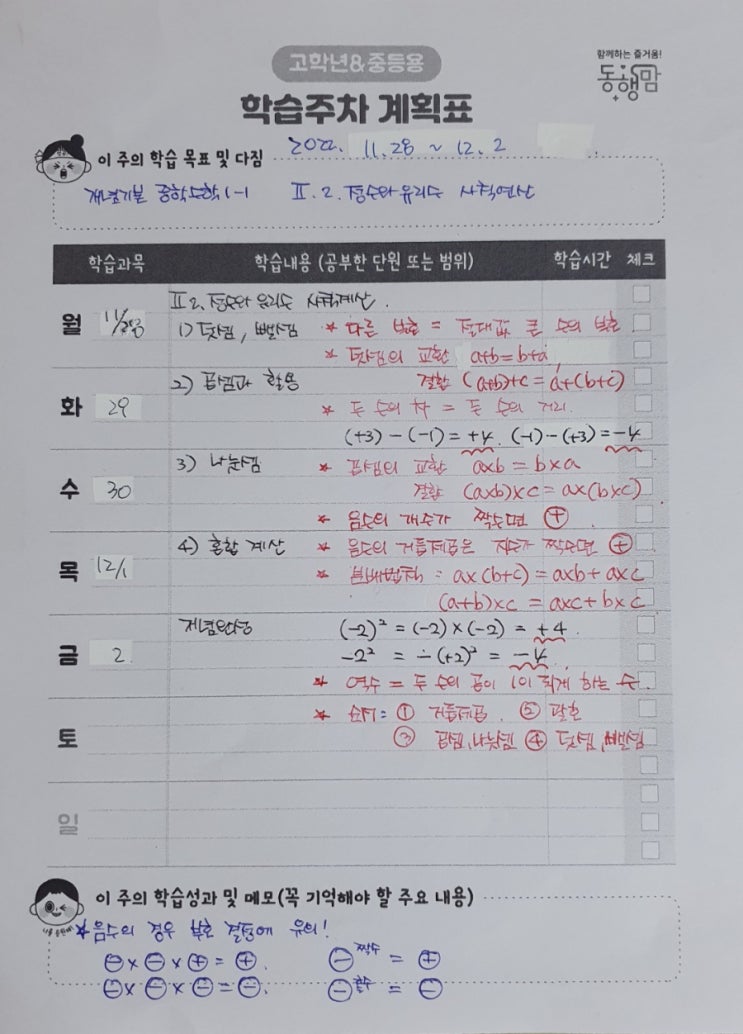 고학년&중등용
함께하는 즐거움!
동행맘
학습주차 계획표
이 주의 학습 목표 및 다짐 2022. 11.28 ~ 12.2
개념기본 공학수학 1-1 Ⅱ.2. 정수와 유리수 사칙연산
학습과목 학습내용 (공부한 단원 또는 범위) 학습시간 체크
월 11/28 Ⅱ 2. 정수와 유리수 사칙계산.
1) 덧셈, 뺄셈 * 다른 부호 = 절대값 큰 수의 부호
* 덧셈의 교환 a+b=b+a
2) 곱셈과 활용 결합 (a+b)+c = a+(b+c)
화 29 * 두 수의 차 = 두 수의 거리.
(+3)-(-1)=+4. (-1)-(+3)=-4
3) 나눗셈 * 곱셈의 교환 axb = bxa
수 30 결합 (axb)xc = ax(bxc)
* 음수의 개수가 짝수면 ⊕
4) 혼합 계산 * 음수의 거듭제곱은 지수가 짝수면 ⊕
목 12/1 * 분배법칙: ax(b+c) = axb + axc
(a+b)xc = axc + bxc
개념완성 (-2)² = (-2)×(-2) = +4.
금 2. -2² = -(+2)² = -4
* 역수 = 두 수의 곱이 1이 되게 하는 수.
* 순서: ① 거듭제곱. ② 괄호
토 ③ 곱셈,나눗셈 ④ 덧셈,뺄셈
일
이 주의 학습성과 및 메모(꼭 기억해야 할 주요 내용)
*음수의 경우 부호 결정에 유의!
⊖×⊖×⊕=⊕. ⊖짝수 = ⊕
⊖×⊖×⊖=⊖. ⊖홀수 = ⊖